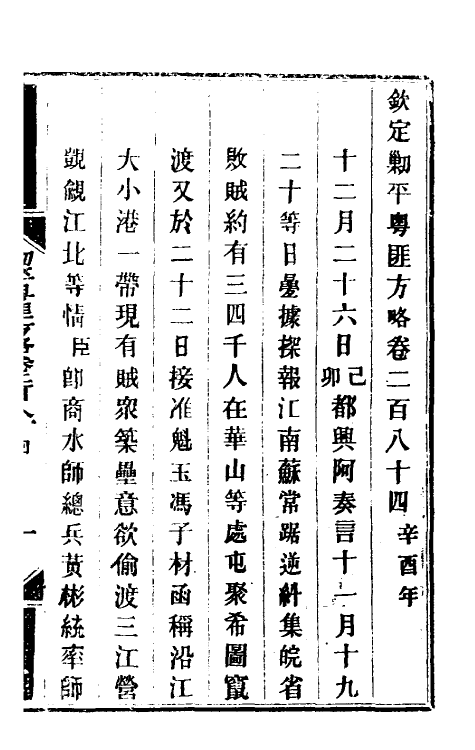 欽定剿平粵匪方略卷二百八十四 辛酉年
十二月二十六日己卯都興阿奏言十一月十九
二十等日疊據探報江南蘇常踞逆糾集皖省
敗賊約有三四千人在華山等處屯聚希圖竄
渡又於二十二日接准魁玉馮子材函稱沿江
大小港一帶現有賊眾築壘意欲偷渡三江營
覬覦江北等情臣卽商水師總兵黃彬統率師
一